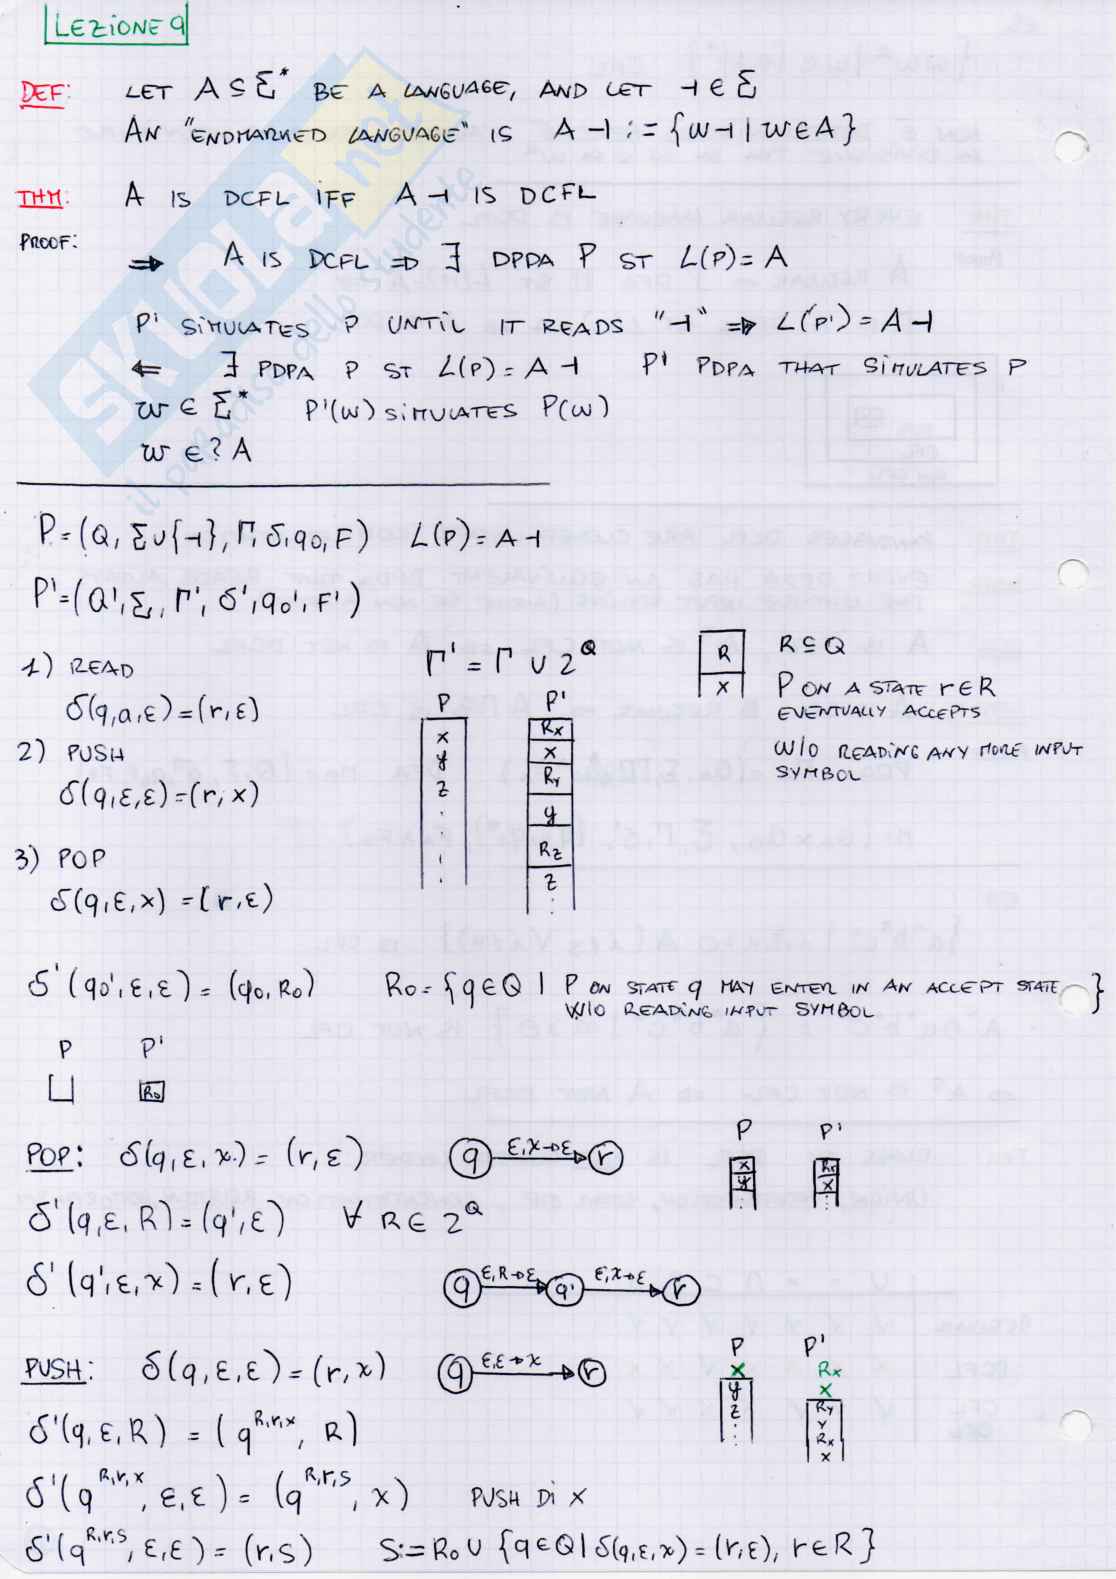 LEZIONE 9
DEF: LET A ⊆ Σ* BE A LANGUAGE, AND LET ⊣ ∈ Σ
AN "ENDMARKED LANGUAGE" IS A⊣ := {w⊣ | w ∈ A}
THM: A IS DCFL IFF A⊣ IS DCFL
PROOF:
⇒ A IS DCFL ⇒ ∃ DPDA P ST L(P)=A
P' SIMULATES P UNTIL IT READS "⊣" ⇒ L(P')=A⊣
⇐ ∃ PDPA P ST L(P)=A⊣ P' PDPA THAT SIMULATES P
w ∈ Σ* P'(w) SIMULATES P(w)
w ∈? A
P=(Q, Σ∪{⊣}, Γ, δ, q0, F) L(P)=A⊣
P'=(Q', Σ, Γ', δ', q0', F')
1) READ
δ(q,a,ε)=(r,ε)
2) PUSH
δ(q,ε,ε)=(r,x)
3) POP
δ(q,ε,x)=(r,ε)
Γ' = Γ ∪ 2^Q
P P'
x
y
z
Rx
x
Ry
y
Rz
z
R
x
R ⊆ Q
P ON A STATE r∈R
EVENTUALLY ACCEPTS
W/O READING ANY MORE INPUT
SYMBOL
δ'(q0',ε,ε)=(q0,R0) R0={q∈Q | P ON STATE q MAY ENTER IN AN ACCEPT STATE
W/O READING INPUT SYMBOL }
P P'
R0
POP: δ(q,ε,x)=(r,ε) q ε,x→ε r
P P'
x
y
Rx
x
δ'(q,ε,R)=(q',ε) ∀ R∈2^Q
δ'(q',ε,x)=(r,ε) q ε,R→ε q' ε,x→ε r
PUSH: δ(q,ε,ε)=(r,x) q ε,ε→x r
P P'
x
y
z
Rx
x
Ry
y
Rx
x
δ'(q,ε,R)=(q^R,r,x, R)
δ'(q^R,r,x, ε,ε)=(q^R,r,s, x) PUSH DI X
δ'(q^R,r,s, ε,ε)=(r,s) S:=R0∪{q∈Q | δ(q,ε,x)=(r,ε), r∈R}
SKUOLA.net
il paradiso dello studente